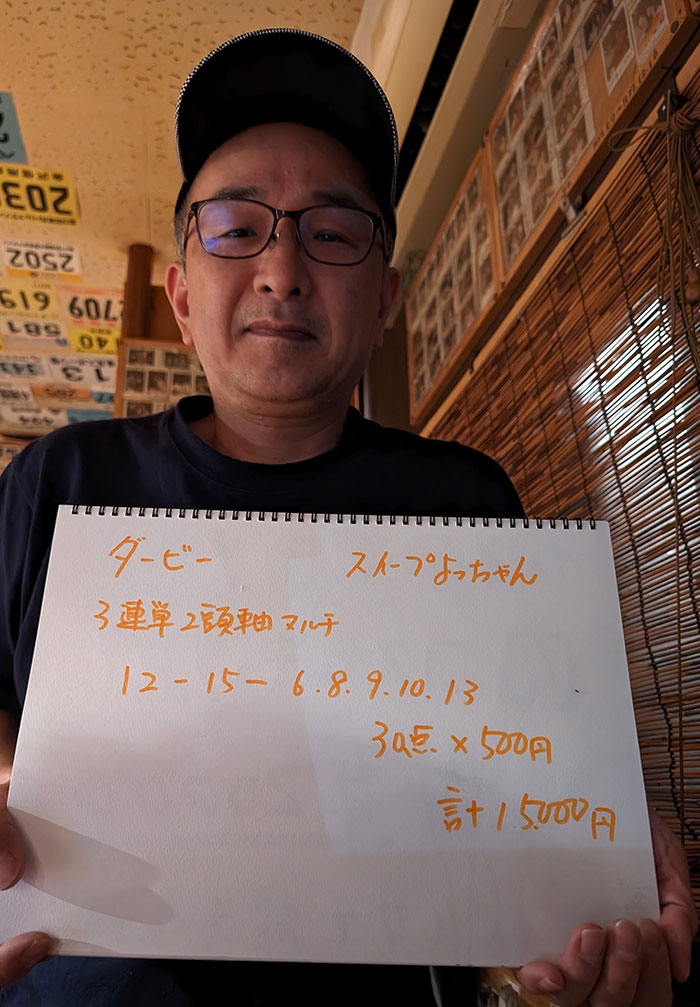 ダービー　スイープよっちゃん
3連単2頭軸マルチ
12-15-6.8.9.10.13
30点×500円
計15,000円
203
2502
619
2709
581
140
13